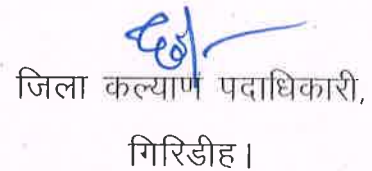 जिला कल्याण पदाधिकारी,
गिरिडीह।